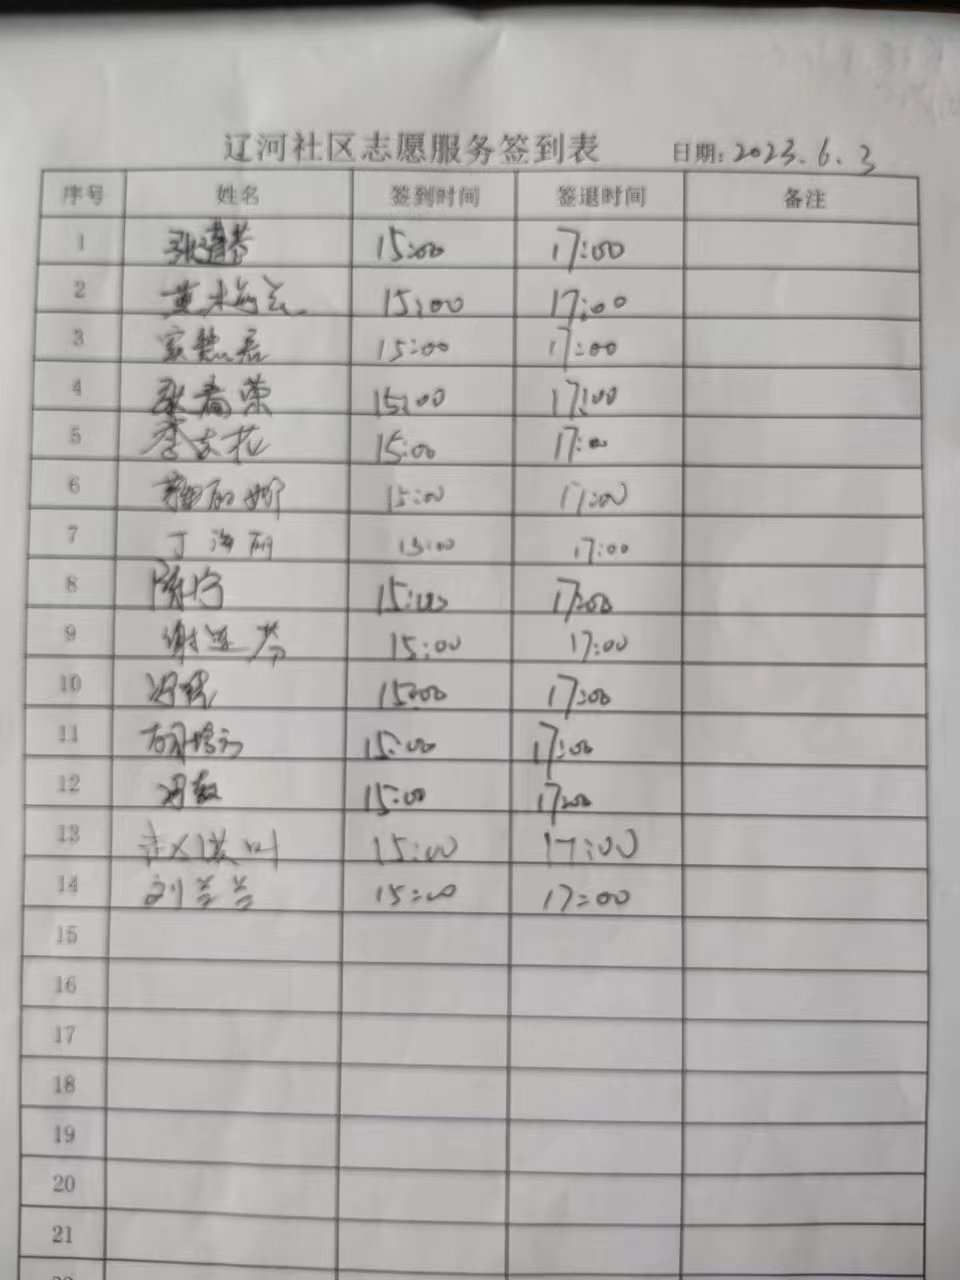 辽河社区志愿服务签到表 日期: 2023.6.3
序号 姓名 签到时间 签退时间 备注
1 15:00 17:00
2 15:00 17:00
3 15:00 17:00
4 张春荣 15:00 17:00
5 李文花 15:00 17:00
6 15:00 17:00
7 丁海丽 15:00 17:00
8 陈宁 15:00 17:00
9 谢连芬 15:00 17:00
10 15:00 17:00
11 15:00 17:00
12 15:00 17:00
13 15:00 17:00
14 刘兰兰 15:00 17:00
15
16
17
18
19
20
21